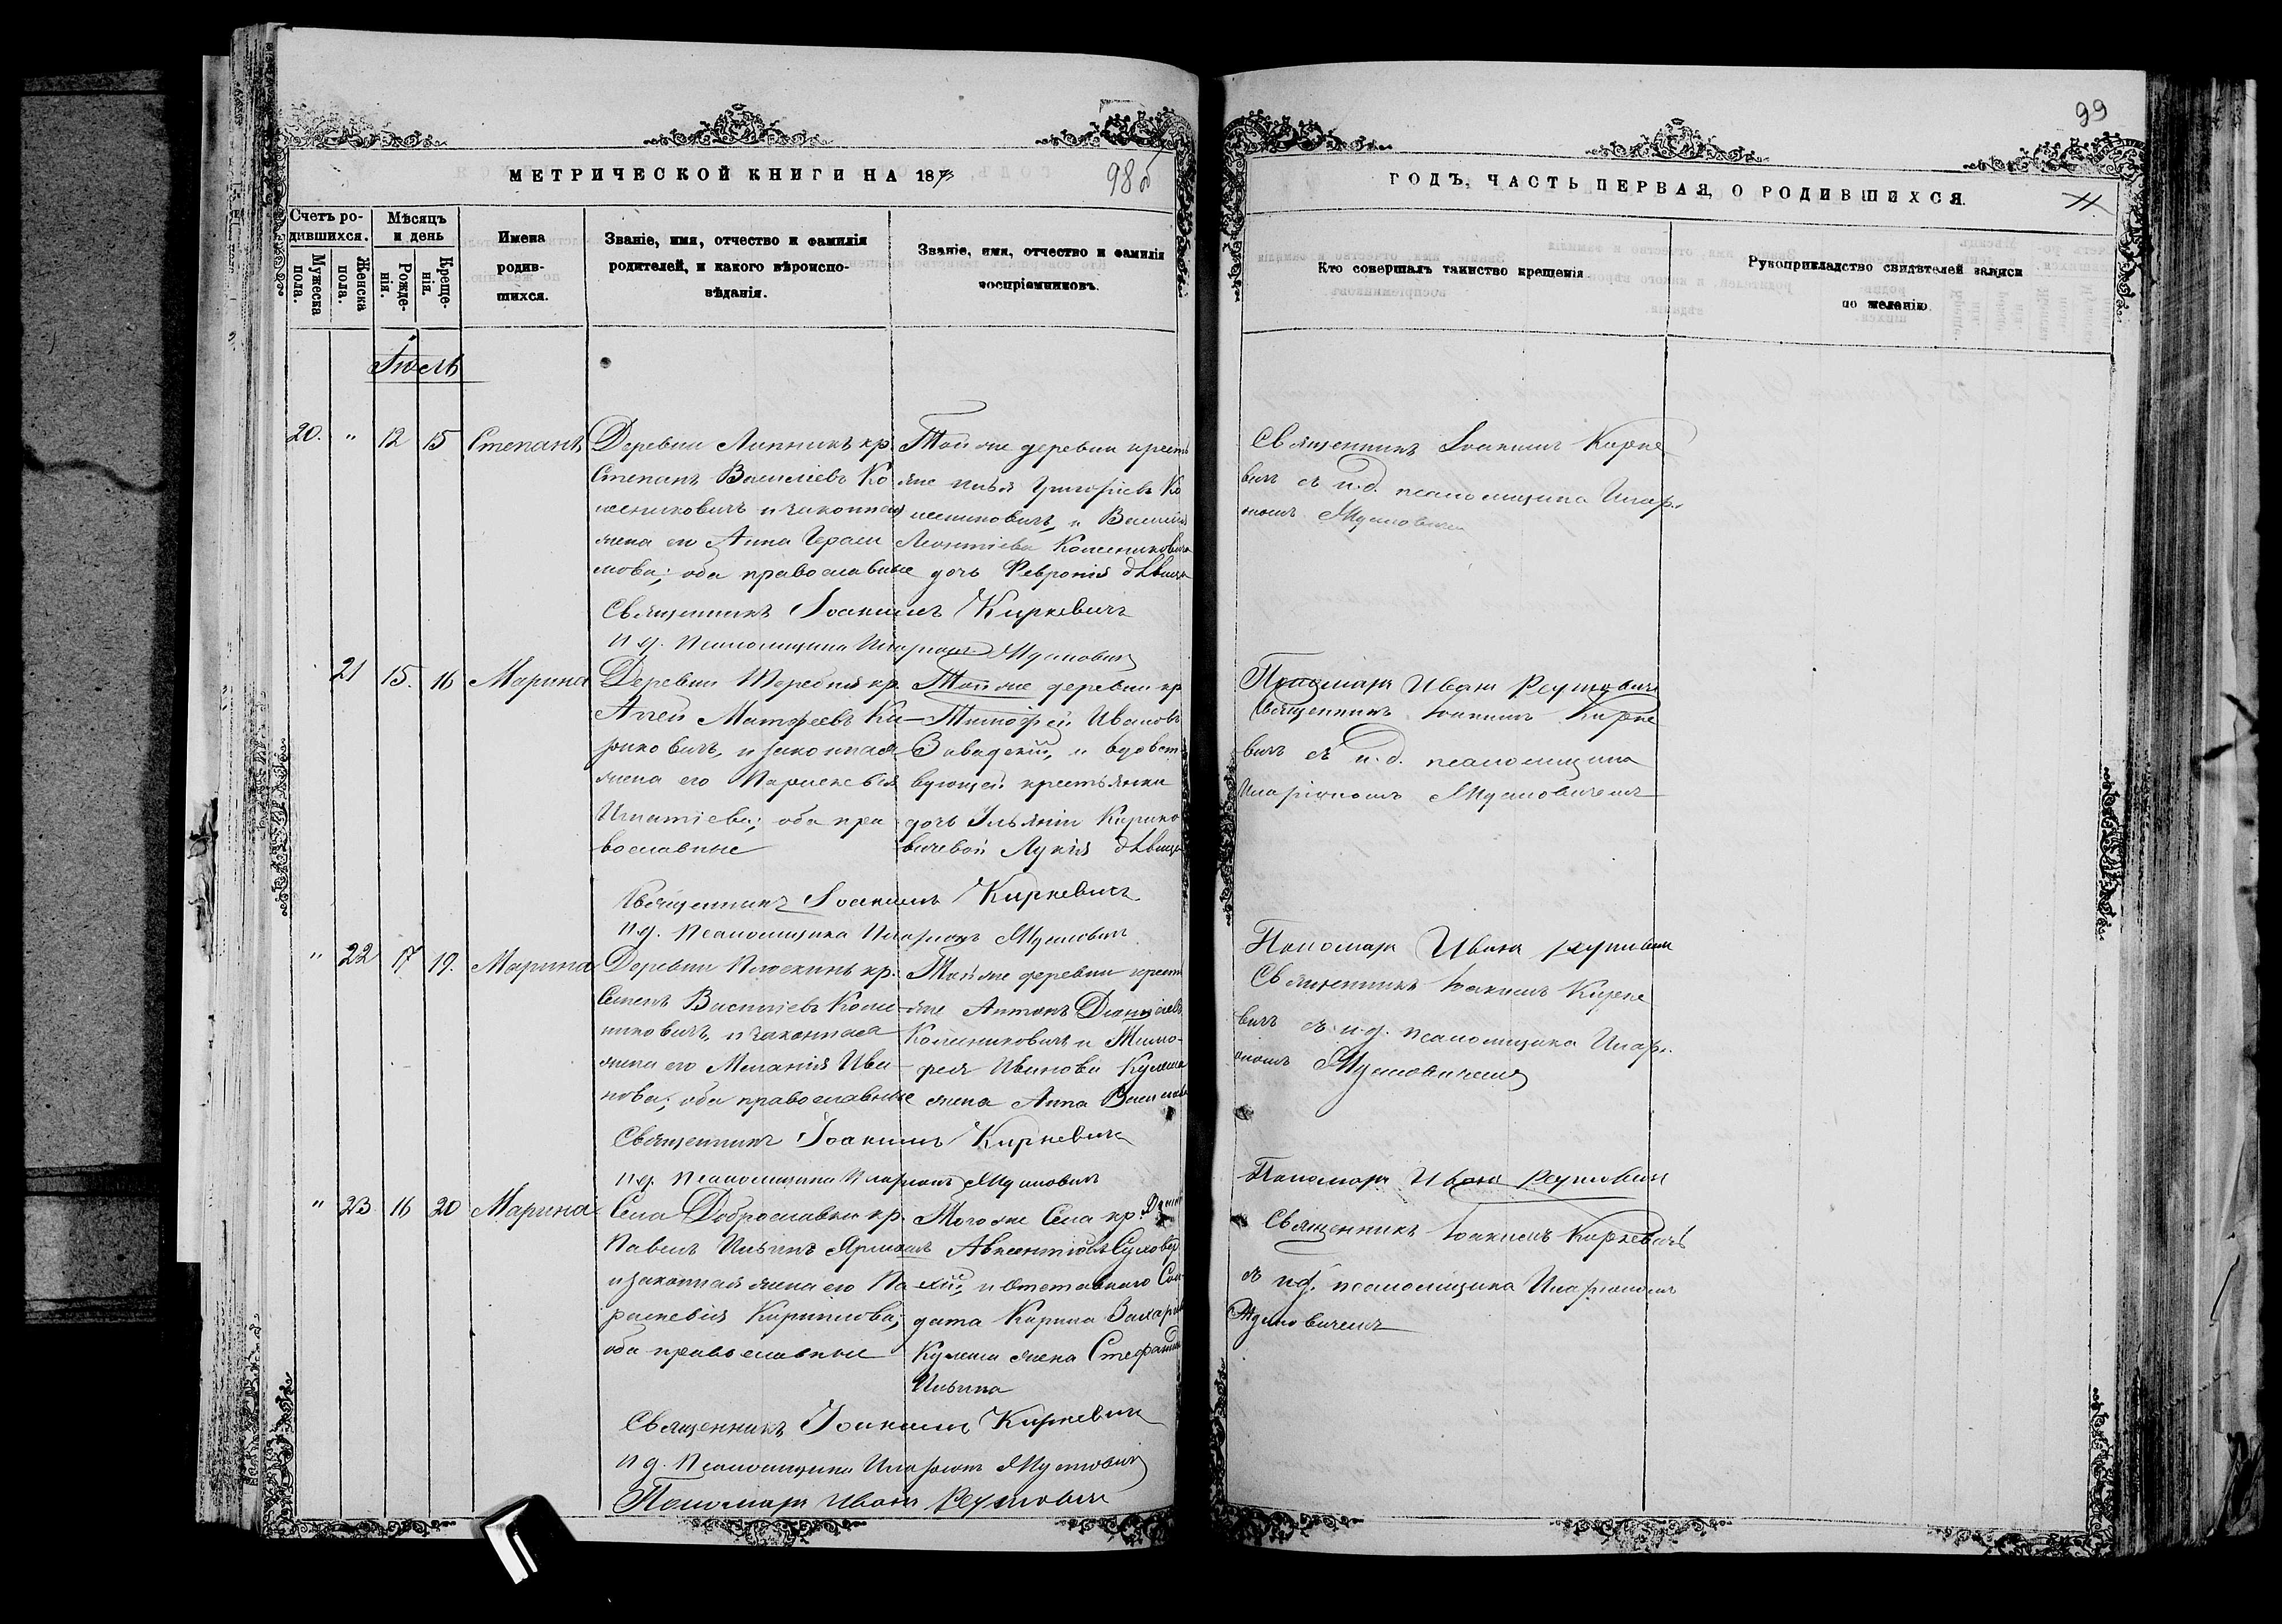 99
МЕТРИЧЕСКОЙ КНИГИ НА 1873
98об
ГОДЪ, ЧАСТЬ ПЕРВАЯ, О РОДИВШИХСЯ.
11.
Счетъ ро-
дившихся.
Мужеска
пола.
Женска
пола.
Мѣсяцъ
и день
Рожде-
нія.
Креще-
нія.
Имена
родив-
шихся.
Званіе, имя, отчество и фамилія
родителей, и какого вѣроиспо-
вѣданія.
Званіе, имя, отчество и фамилія
воспріемниковъ.
Кто совершалъ таинство крещенія
Рукоприкладство свидѣтелей записи
по желанію
Іюль
20. " 12 15 Степанъ
Деревни Липникъ кр.
Степанъ Василіевъ Ко
лениковичъ и законная
жена его Анна Гераси
мова; оба православные
Той же деревни кресть
яне Илья Григоріевъ Ко
лениковичъ, и Василія
Леонтіева Колениковича
дочь Февронія дѣвица
Священникъ Іоакимъ Киркевичъ
и.д. Псаломщика Иларіонъ
Священникъ Іоакимъ Кирке
вичъ съ и.д. псаломщика Илар.
іономъ
21 15. 16 Марина
Деревни кр.
Матфеевъ Ки-
риковичъ, и законная
жена его Параскевія
Игнатіева; оба пра
вославные
Той же деревни кр
Тимофей Ивановъ
Завадскій, и вдовст
вующей крестьянки
дочь Ульяніи Кирико
вичевой Лукія дѣвица
Священникъ Іоакимъ Киркевичъ
и.д. Псаломщика Иларіонъ
Пономарь Иванъ Реутовичъ
Священникъ Іоакимъ Кирке
вичъ съ и.д. псаломщика
Иларіономъ
" 22 17 19. Марина
Деревни кр.
Семенъ Василіевъ Коле
никовичъ, и законная
жена его Меланія Ива-
нова; оба православные
Той же деревни крест
яне Антонъ Діонисіевъ
Колениковичъ и Тимо-
фея Иванова Кулеша
жена Анна Васильева
Священникъ Іоакимъ Киркевичъ
и.д. Псаломщика Иларіонъ
Пономарь Иванъ Реутовичъ
Священникъ Іоакимъ Кирке
вичъ съ и.д. псаломщика Илар.
іономъ
" 23 16 20 Марина
Села Доброславки кр.
Павелъ Ильинъ
и законная жена его Па
раскевія Кириллова;
оба православные
Того же Села кр.
Авксентіевъ
и отставнаго Сол
дата Кирила Захарія
Кулеши жена Стефанида
Ильина
Священникъ Іоакимъ Киркевичъ
и.д. Псаломщика Иларіонъ
Пономарь Иванъ Реутовичъ
Пономарь Иванъ Реутовичъ
Священникъ Іоакимъ Киркевичъ
съ и.д. псаломщика Иларіономъ